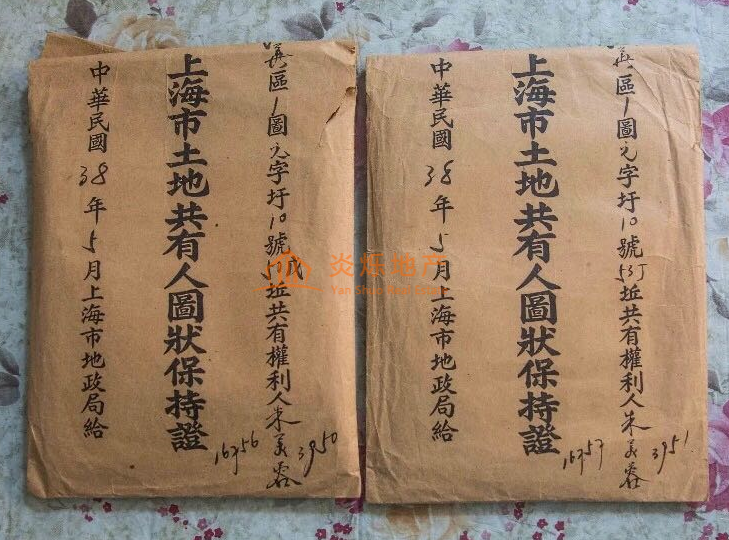 區1圖元字圩10號坵共有權利人朱美蓉
上海市土地共有人圖狀保持證
中華民國38年5月上海市地政局給
16756
3950
區1圖元字圩10號53丁坵共有權利人朱美蓉
上海市土地共有人圖狀保持證
中華民國38年5月上海市地政局給
16757
3951
炎烁地产